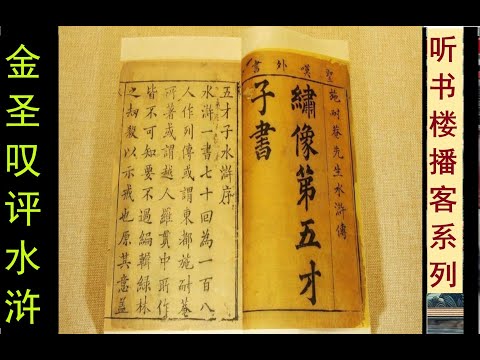 金圣叹评水浒
聖嘆外書
施耐菴先生水滸傳
繡像第五才
子書
五才子水滸序
水滸一書七十回為一百八
人作列傳或謂東都施耐菴
所著或謂越人羅貫中所作
皆不可知要不過編輯綠林
之劫殺以示戒也原其意蓋
听书楼播客系列